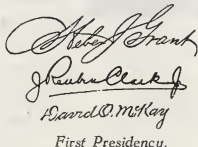 Heber J Grant
J Reuben Clark Jr
David O. McKay
First Presidency.